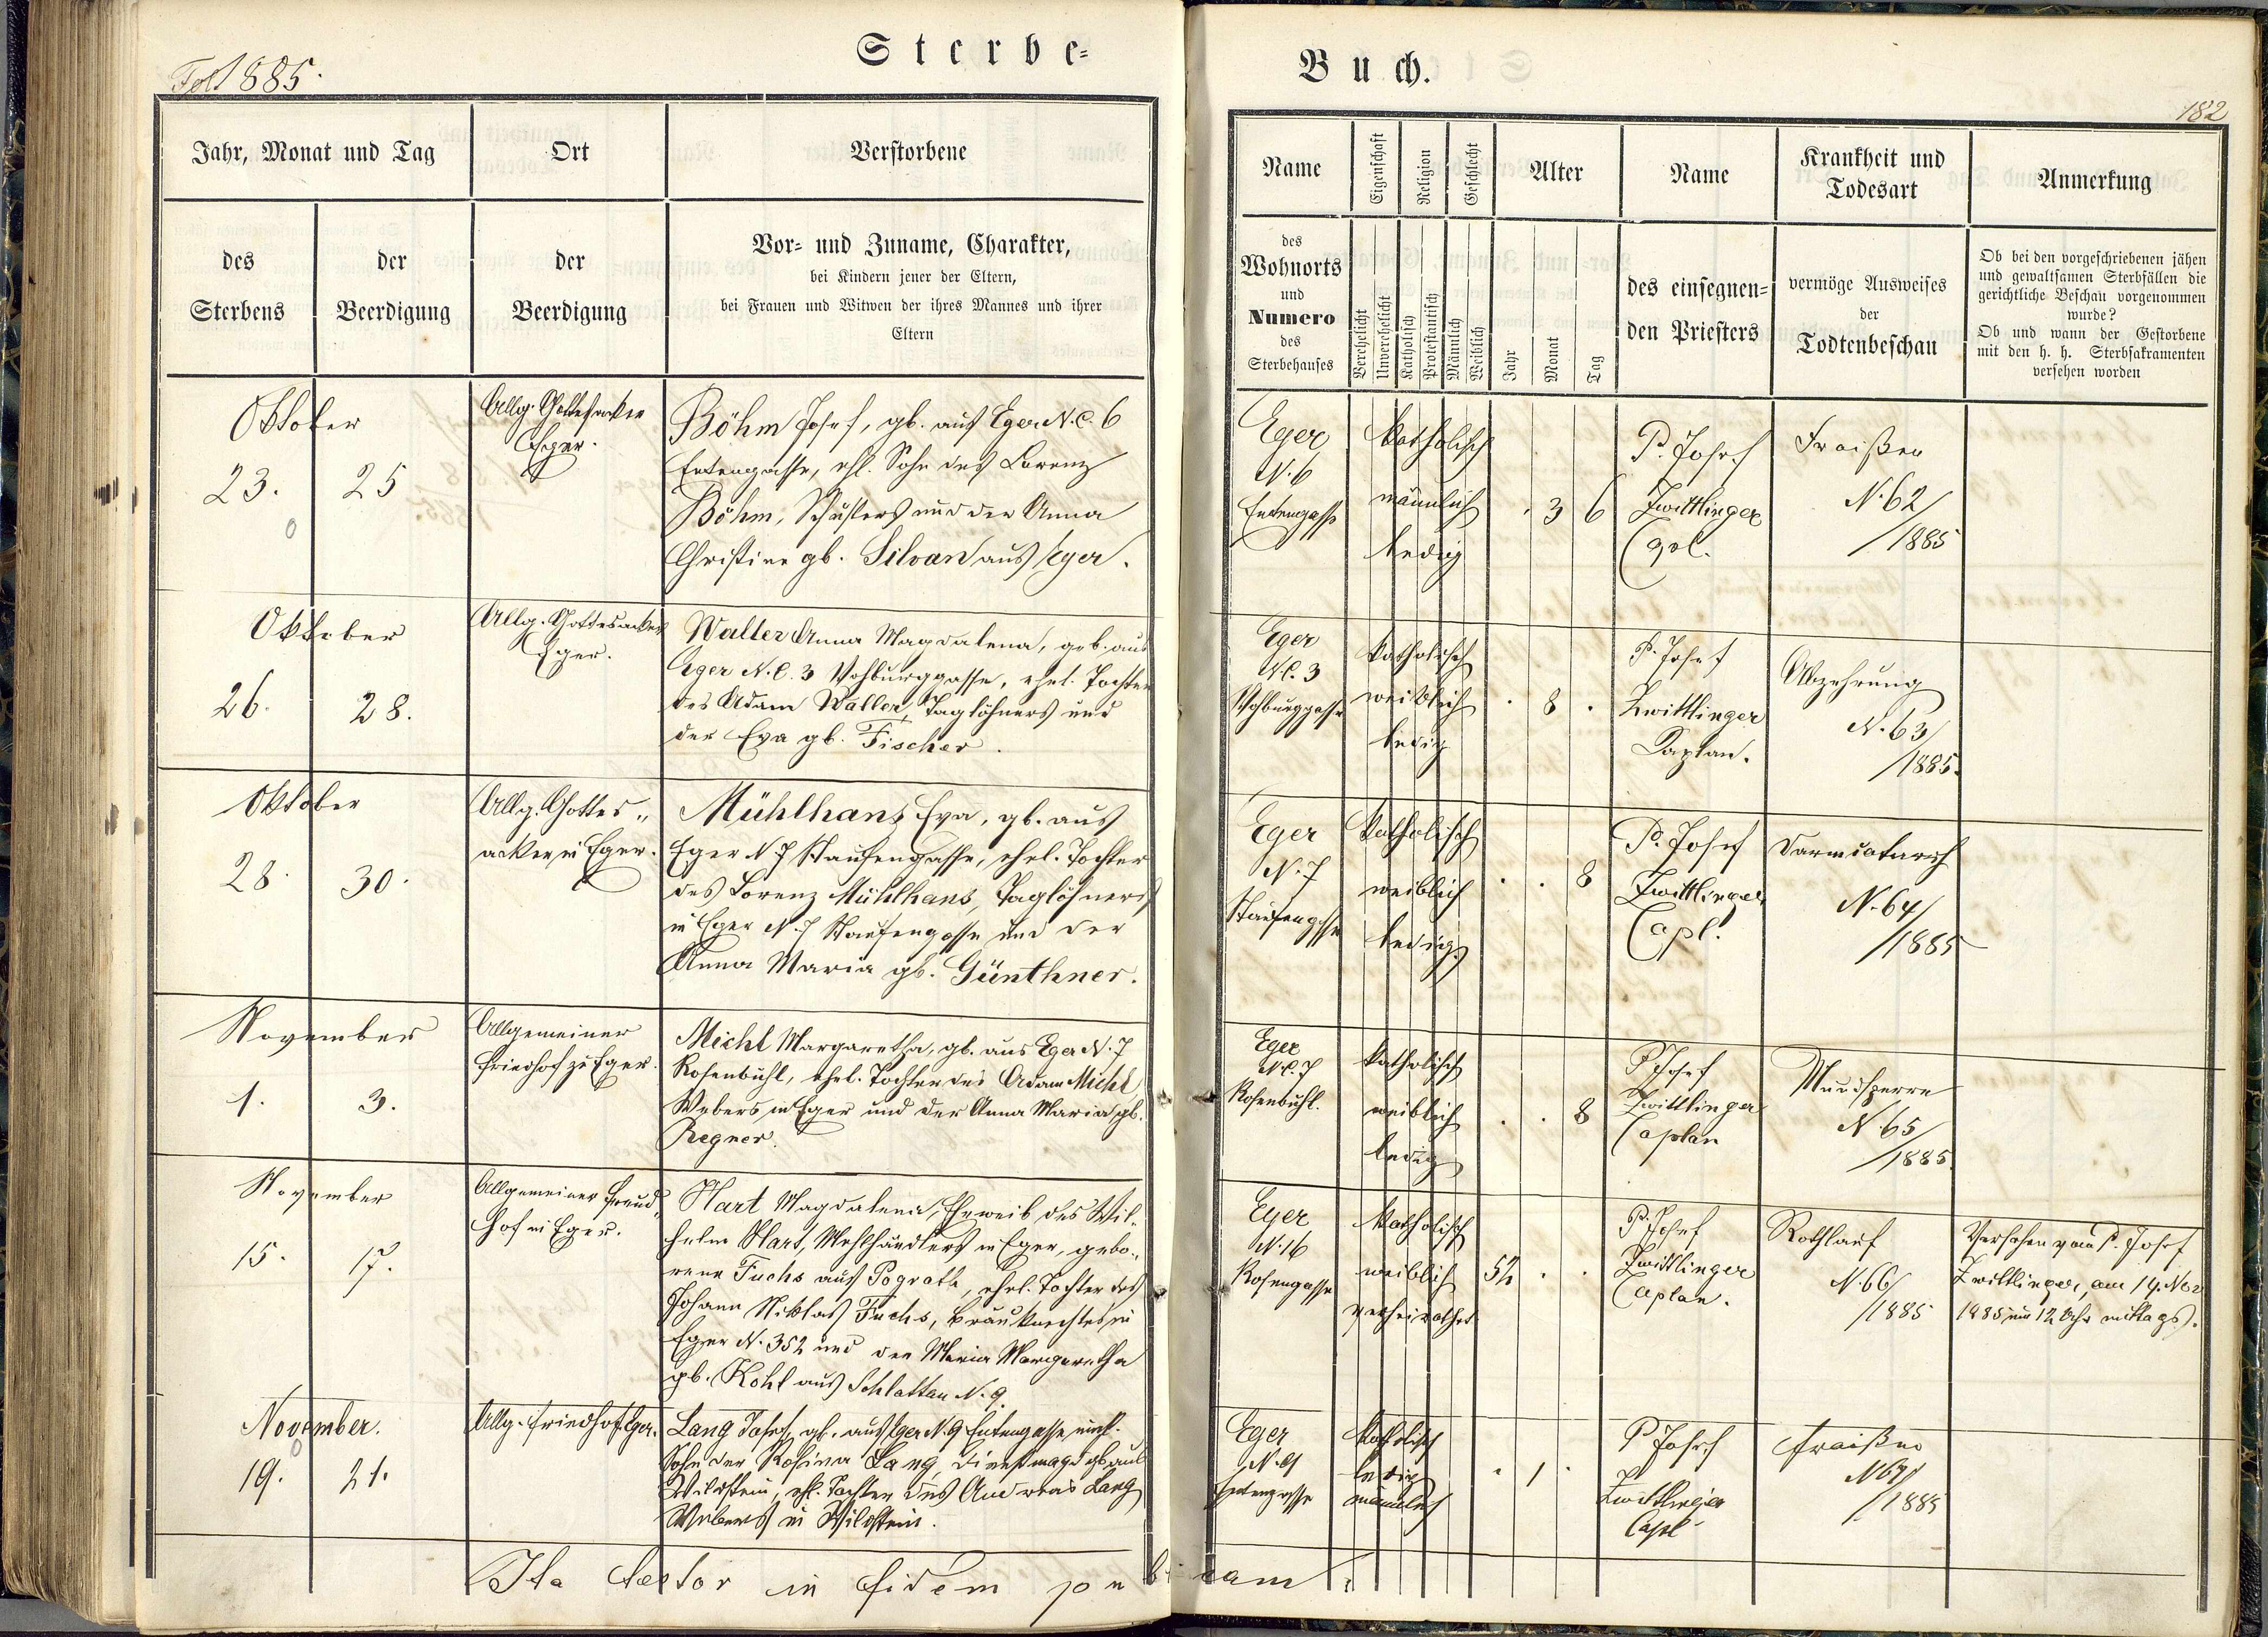 Sterbe=
Fol 1885.
Jahr, Monat und Tag
Ort
Verstorbene
des
Sterbens
der
Beerdigung
der
Beerdigung
Vor= und Zuname, Charakter,
bei Kindern jener der Eltern,
bei Frauen und Witwen der ihres Mannes und ihrer
Eltern
Oktober
23. 25
Allg. Gottesacker
Eger.
Böhm Josef, gb. aus Eger N.C. 6
Entengasse, ehl. Sohn des Lorenz
Böhm, Schusters und der Anna
Christine gb. Silvan aus Eger.
Oktober
26. 28.
Allg. Gottesacker
Eger.
Waller Anna Magdalena, geb. aus
Eger N.C. 3 Vohburggasse, ehel. Tochter
des Adam Waller, Taglöhners und
der Eva gb. Fischer.
Oktober
28. 30.
Allg. Gottes„
acker in Eger.
Mühlhans Eva, gb. aus
Eger N. 7 Staufengasse, ehel. Tochter
des Lorenz Mühlhans, Taglöhners
in Eger N. 7 Staufengasse und der
Anna Maria gb. Günthner.
November
1. 3.
Allgemeiner
Friedhof zu Eger.
Michl Margaretha, gb. aus Eger N. 7
Rosenbühl, ehel. Tochter des Adam Michl
Webers in Eger und der Anna Maria gb.
Regner.
November
15. 17.
Allgemeiner Freud„
hof in Eger.
Hart Magdalena, Eheweib des Wil„
helm Hart, Mehlhändlers in Eger, gebo„
rene Fuchs aus Pograth, ehel. Tochter des
Johann Niklas Fuchs, Bräuknechtes in
Eger N. 352 und der Maria Margaretha
gb. Kohl aus Schlattan N. 9.
November.
19. 21.
Allg. Friedhof Eger.
Lang Josef, gb. aus Eger N. 9 Entengasse unehl.
Sohn der Rosina Lang Dienstmagd gb aus
Wildstein, ehl. Tochter des Andreas Lang
Webers in Wildstein.
Ita testor in fidem publicam:
Buch.
182
Name
Eigenschaft
Religion
Geschlecht
Alter
Name
Krankheit und
Todesart
Anmerkung
des
Wohnorts
und
Numero
des
Sterbehauses
Verehelicht
Unverehelicht
Katholisch
Protestantisch
Männlich
Weiblich
Jahr
Monat
Tag
des einsegnen=
den Priesters
vermöge Ausweises
der
Todtenbeschau
Ob bei den vorgeschriebenen jähen
und gewaltsamen Sterbfällen die
gerichtliche Beschau vorgenommen
wurde?
Ob und wann der Gestorbene
mit den h. h. Sterbsakramenten
versehen worden
Eger
N. 6
Entengasse
katholisch
männlich
ledig
. 3 6
P. Josef
Zwittlinger
Cpl.
Fraißen
N. 62/
/1885
Eger
N.C. 3
Vohburggasse
katholisch
weiblich
ledig
. 8 .
P. Josef
Zwittlinger
Caplan.
Abzehrung
N. 63/
/1885.
Eger
N. 7
Staufengasse
katholisch
weiblich
ledig
. . 8
P. Josef
Zwittlinger
Capl.
Darmcatarrh
N. 64/
/1885
Eger
N.C. 7
Rosenbühl.
katholisch
weiblich
ledig
. . 8
P. Josef
Zwittlinger
Caplan
Mundsperre
N. 65/
/1885.
Eger
N. 16
Rosengasse
katholisch
weiblich
verheirathet
52 . .
P. Josef
Zwittlinger
Caplan.
Rothlauf
N. 66/
/1885
Versehen von P. Josef
Zwittlinger, am 14. Nov
1885 um 12 Uhr mittags.
Eger
N. 9
Entengasse
katholisch
ledig
männlich
. 1 .
P Josef
Zwittlinger
Capl
Fraißen
N 67/
/1885